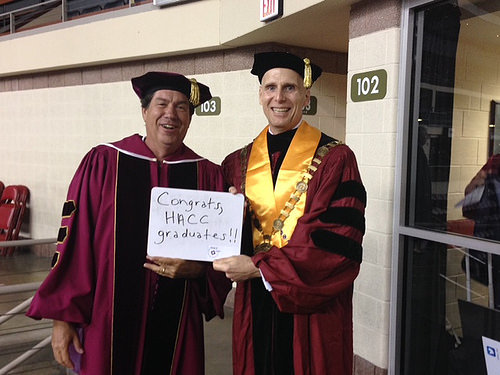 EXIT
103
102
Congrats,
HACC
graduates!!